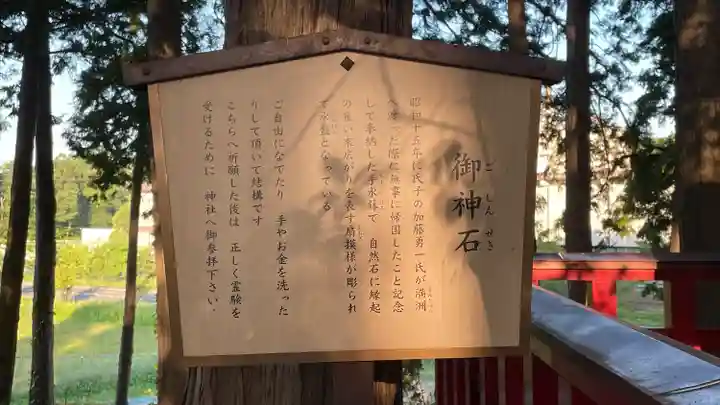 御神石
ごしんせき
昭和十五年に氏子の加藤勇一氏が満洲
へ渡った際に無事に帰国したこと記念
して奉納した手水鉢で 自然石に縁起
の良い末広がりを表す扇模様が彫られ
て水盤となっている
ご自由になでたり 手やお金を洗った
りして頂いて結構です
こちらへ祈願した後は 正しく霊験を
受けるために 神社へ御参拝下さい。